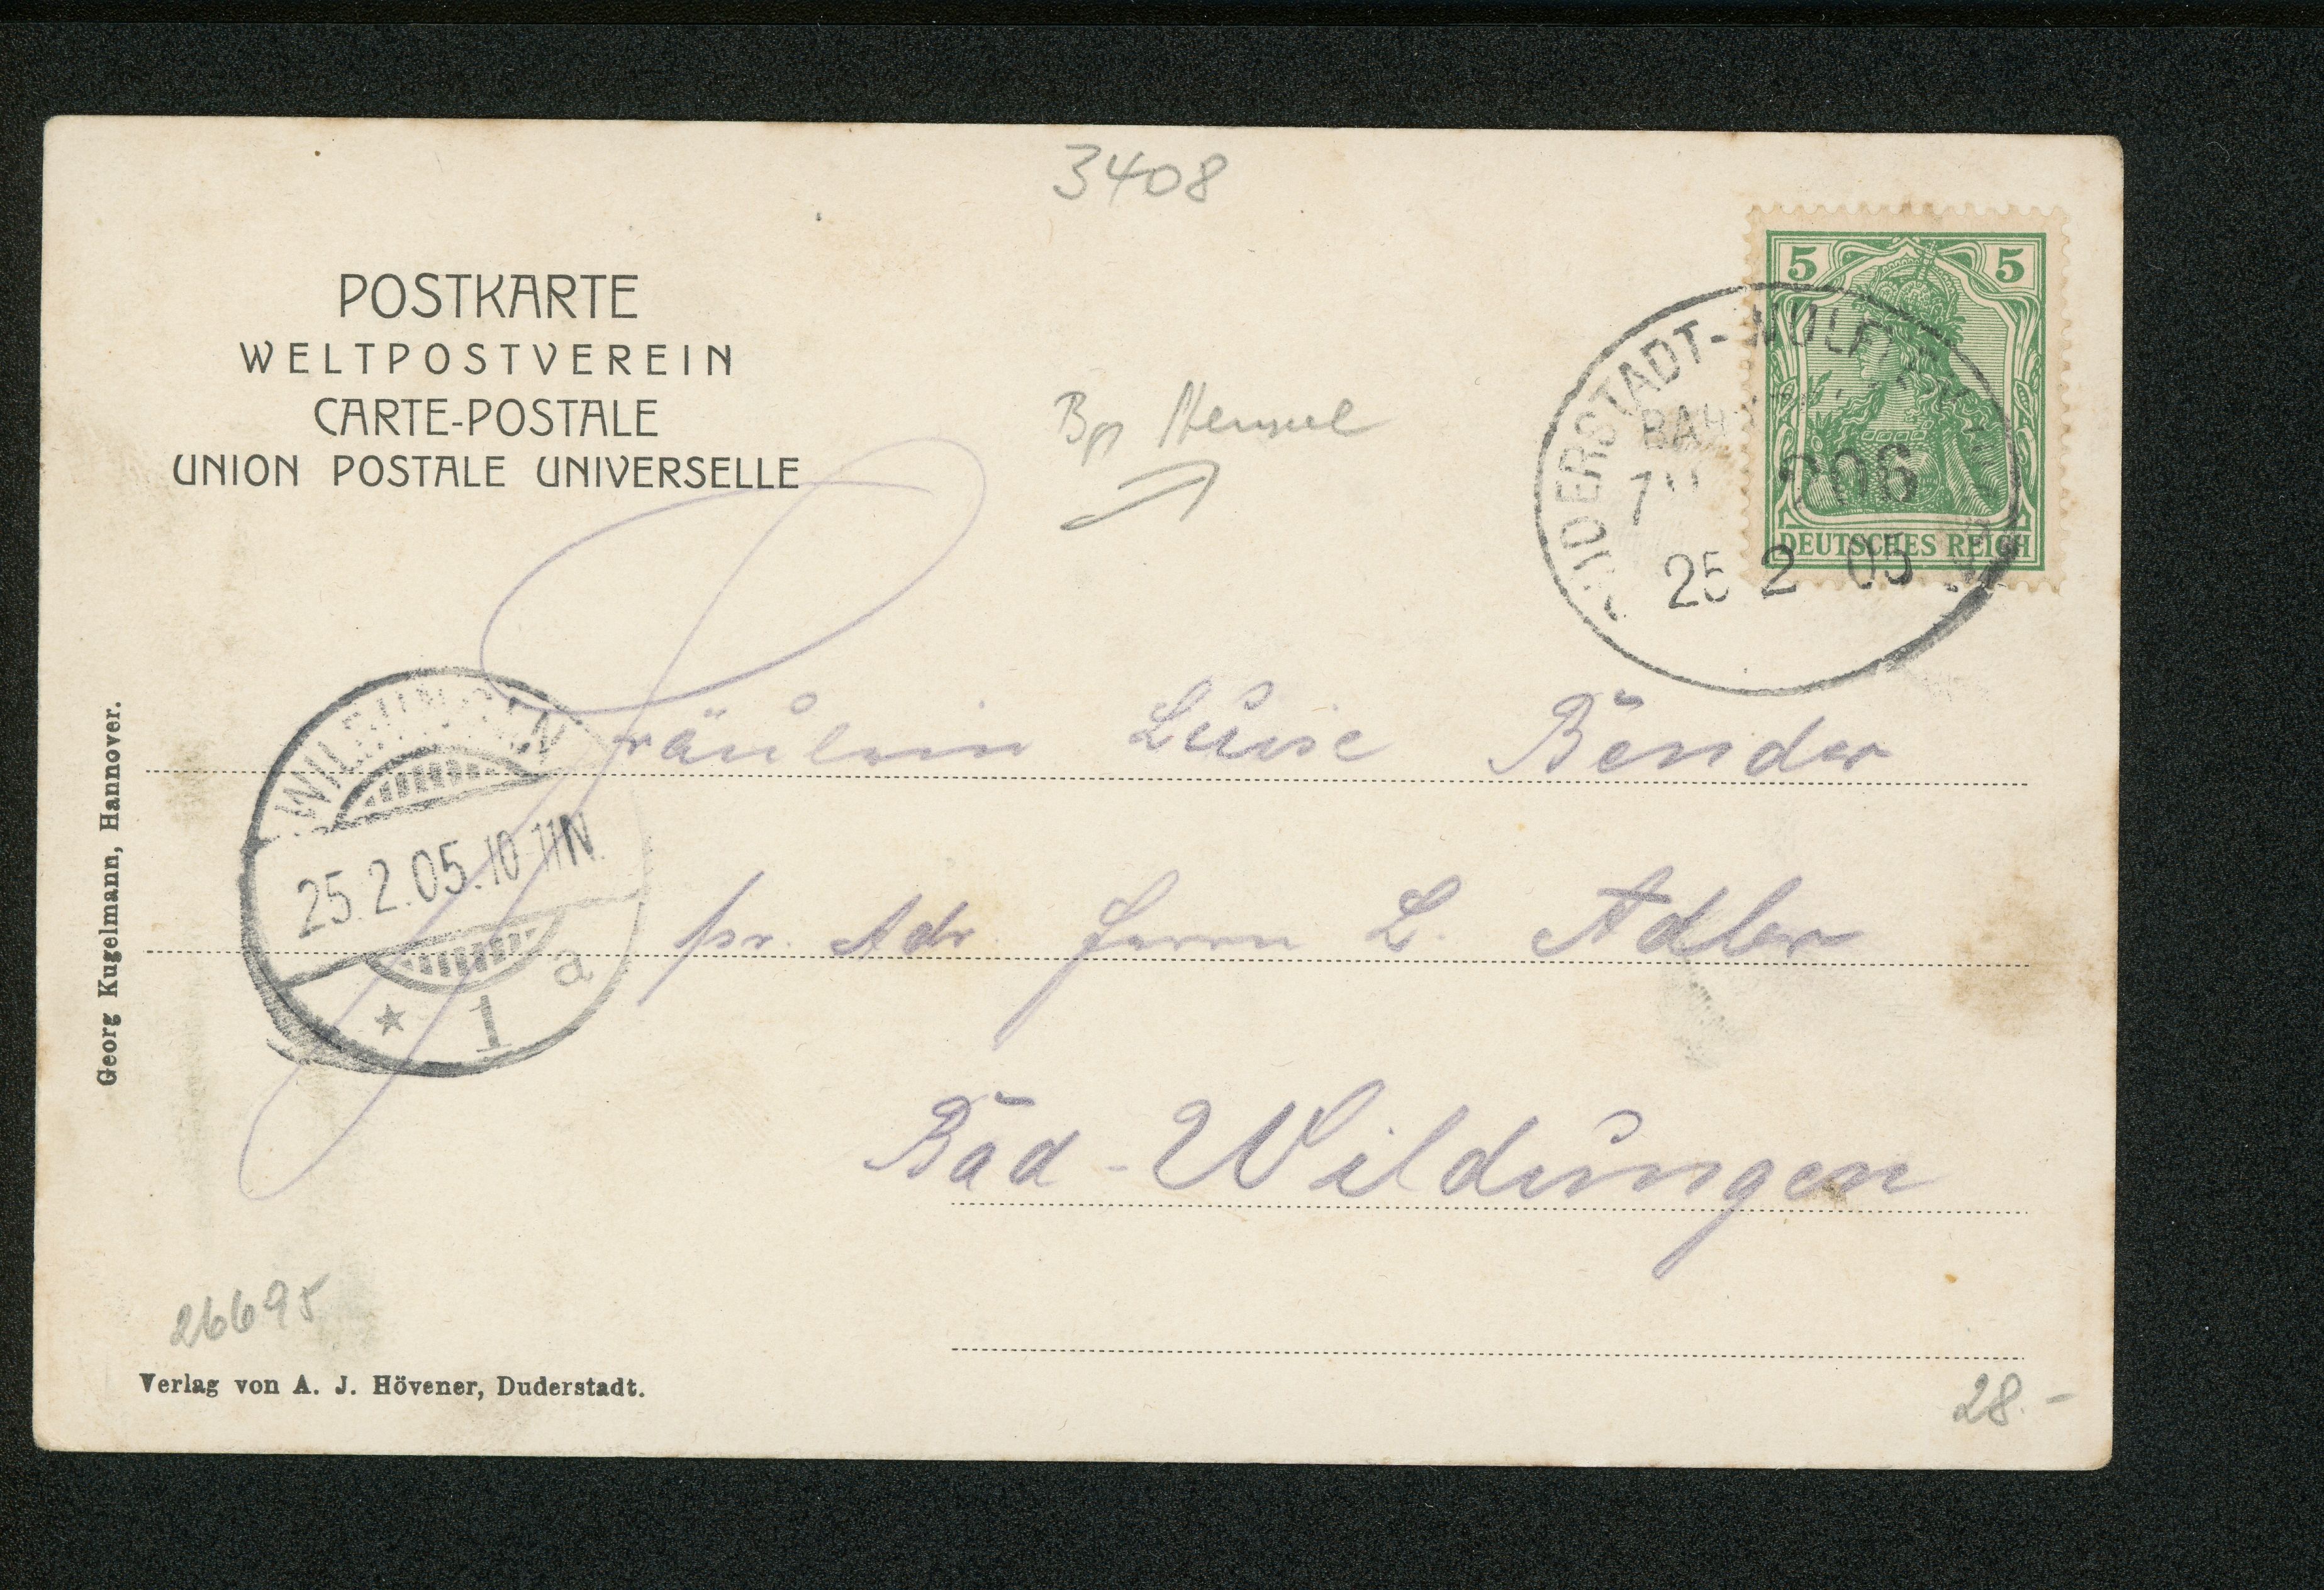 3408
POSTKARTE
WELTPOSTVEREIN
CARTE-POSTALE
UNION POSTALE UNIVERSELLE
5 5
DEUTSCHES REICH
DERSTADT-WULFT
BAH
206
25 2 05
Bp
Fräulein Luise Bender
WILDUNGEN
25.2.05.10-11N.
* 1 a
pr. Adr. Herrn L. Adler
Bad-Wildungen
Georg Kugelmann, Hannover.
26695
Verlag von A. J. Hövener, Duderstadt.
28.-